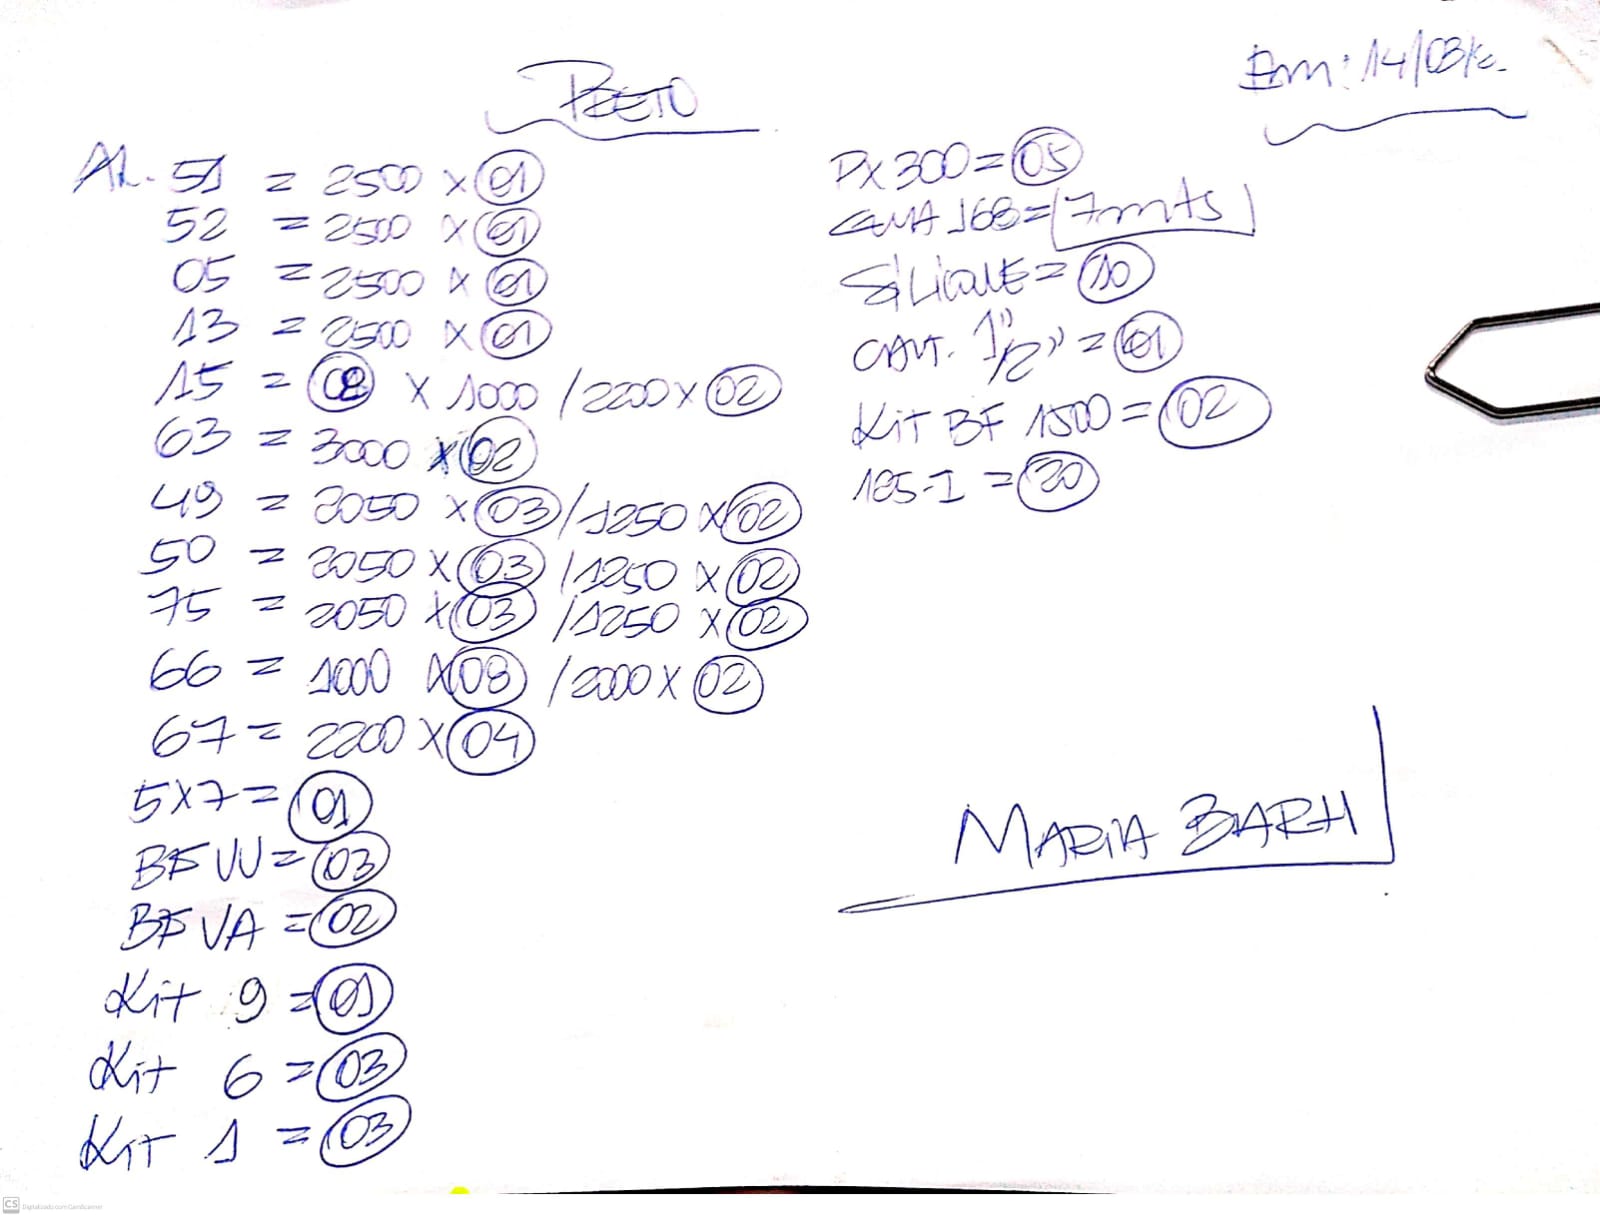 PRETO
Em: 14/03/
AL. 51 = 2500 x 01
52 = 2500 x 01
05 = 2500 x 01
13 = 2500 x 01
15 = 08 x 1000 / 2200 x 02
63 = 3000 x 02
49 = 2050 x 03 / 1250 x 02
50 = 2050 x 03 / 1250 x 02
75 = 2050 x 03 / 1250 x 02
66 = 1000 x 08 / 2000 x 02
67 = 2200 x 04
5x7 = 01
BF VV = 03
BF VA = 02
Kit 9 = 01
Kit 6 = 03
Kit 1 = 03
PX 300 = 05
168 = 7mts
SiLicone = 10
CANT. 1"/2" = 01
Kit BF 1500 = 02
185-I = 20
MARIA BARH
CS Digitalizado com CamScanner